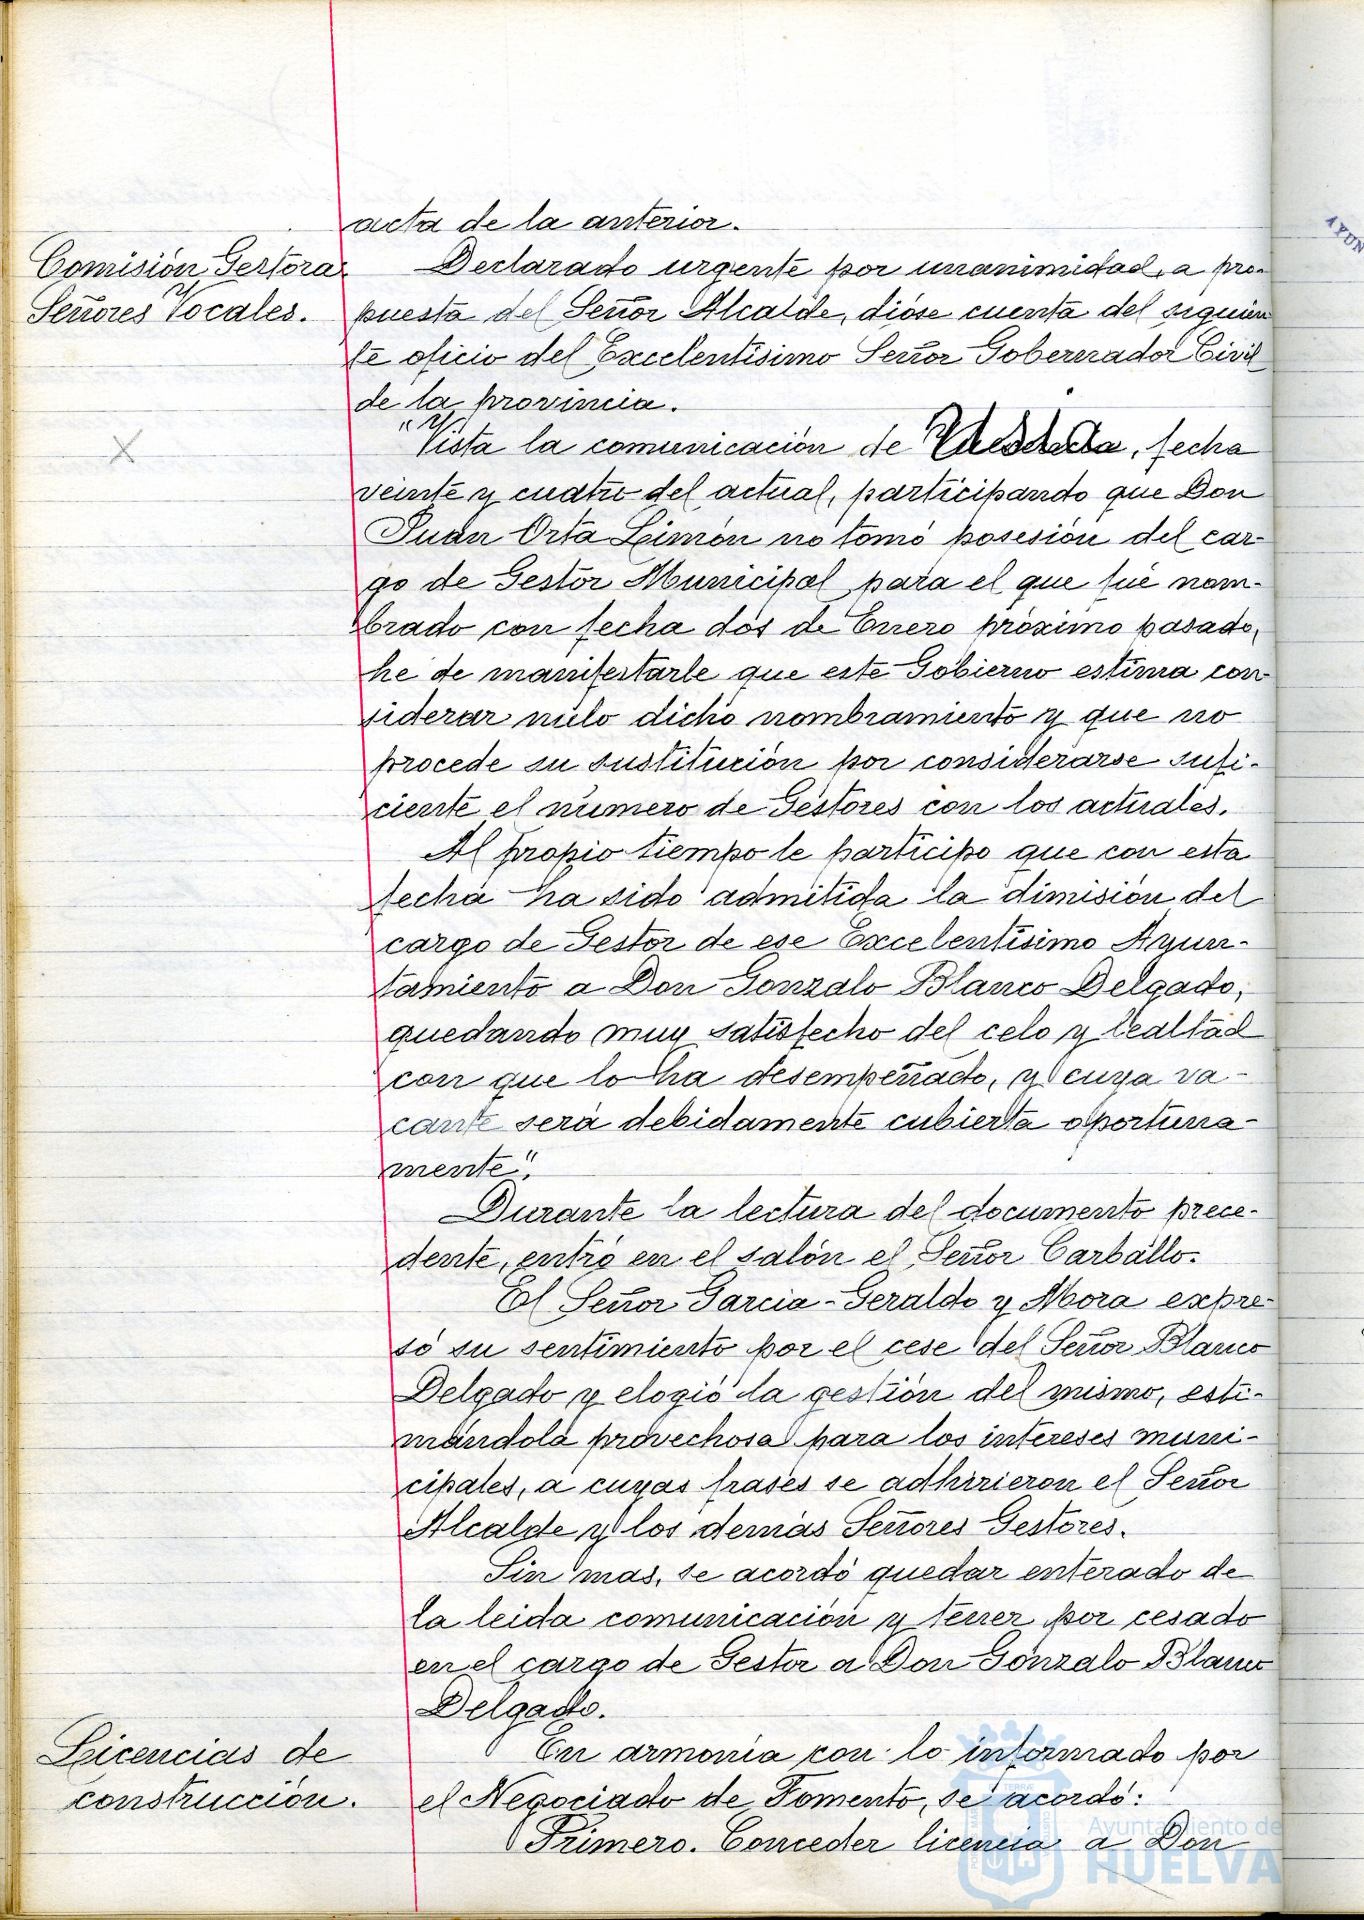 acta de la anterior.
Comisión Gestora.
Señores Vocales.
Declarado urgente por unanimidad, a pro-
puesta del Señor Alcalde, dióse cuenta del siguien-
te oficio del Excelentísimo Señor Gobernador Civil
de la provincia.
"Vista la comunicación de , fecha
veinte y cuatro del actual, participando que Don
Juan Orta Limón no tomó posesión del car-
go de Gestor Municipal para el que fué nom-
brado con fecha dos de Enero próximo pasado,
he de manifestarle que este Gobierno estima con-
siderar nulo dicho nombramiento y que no
procede su sustitución por considerarse sufi-
ciente el número de Gestores con los actuales.
Al propio tiempo le participo que con esta
fecha ha sido admitida la dimisión del
cargo de Gestor de ese Excelentísimo Ayun-
tamiento a Don Gonzalo Blanco Delgado,
quedando muy satisfecho del celo y lealtad
con que lo ha desempeñado, y cuya va-
cante será debidamente cubierta oportuna-
mente".
Durante la lectura del documento prece-
dente, entró en el salón el Señor Carballo.
El Señor Garcia-Geraldo y Mora expre-
só su sentimiento por el cese del Señor Blanco
Delgado y elogió la gestión del mismo, esti-
mándola provechosa para los intereses muni-
cipales, a cuyas frases se adhirieron el Señor
Alcalde y los demás Señores Gestores.
Sin mas, se acordó quedar enterado de
la leida comunicación y tener por cesado
en el cargo de Gestor a Don Gonzalo Blanco
Delgado.
Licencias de
construcción.
En armonía con lo informado por
el Negociado de Fomento, se acordó:
Primero. Conceder licencia a Don
Ayuntamiento de
HUELVA
AYUN